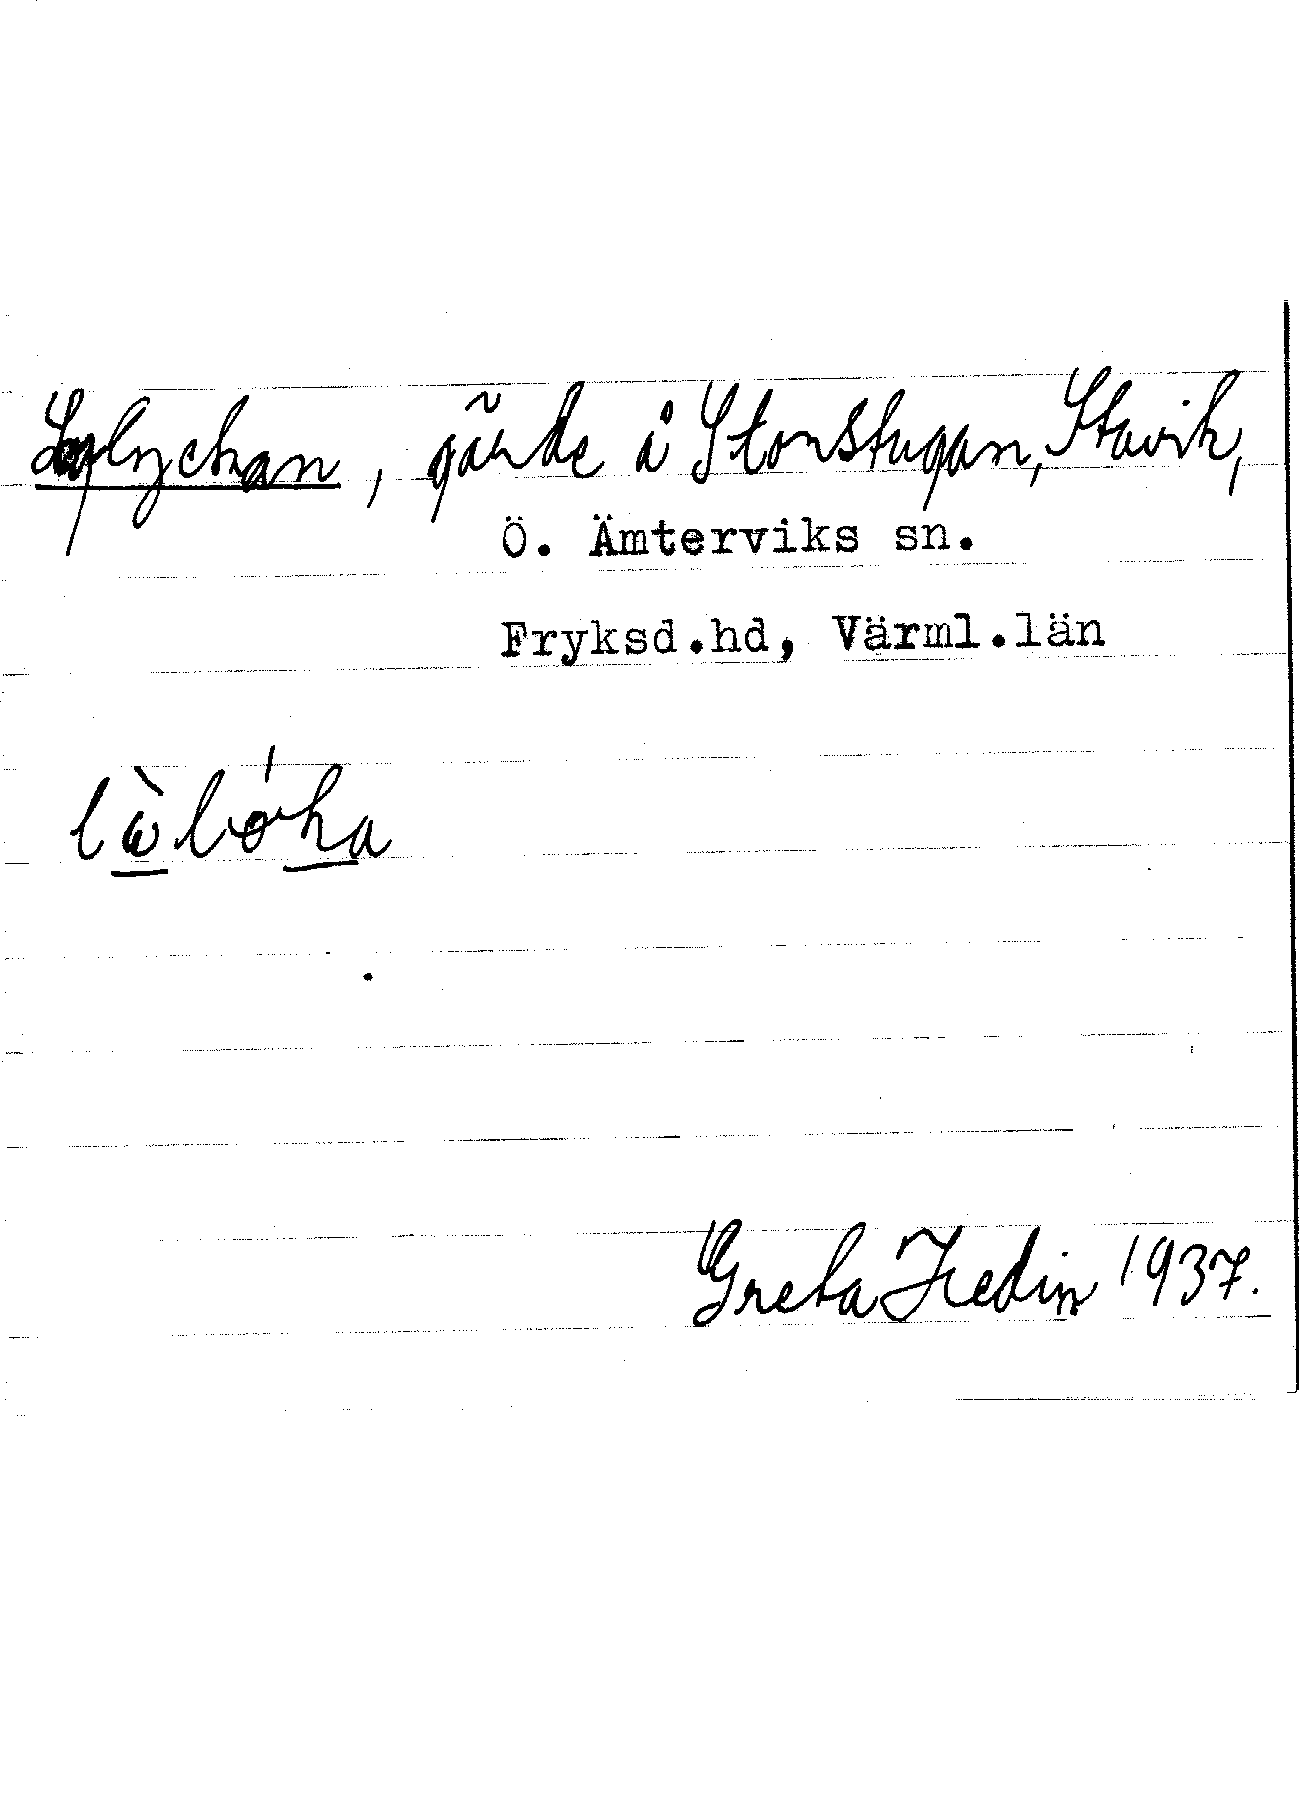 Loglyckan, gärde å Storstugan, Stavik,
Ö. Ämterviks sn.
Fryksd.hd, Värml.län
Greta Hedin 1937.